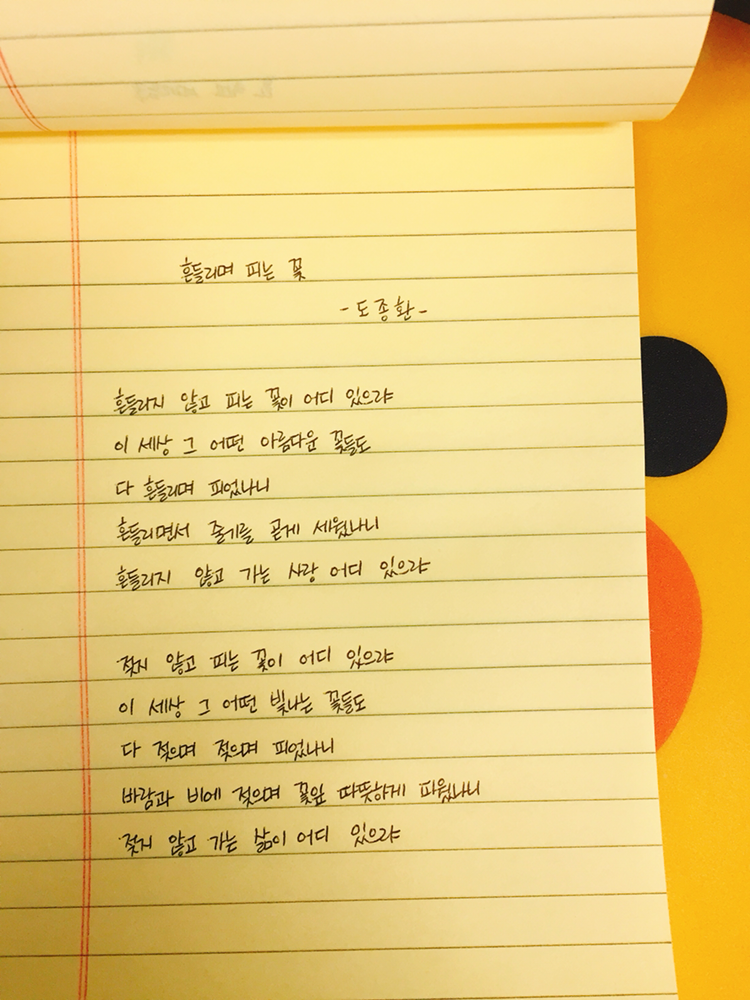 흔들리며 피는 꽃
-도종환-
흔들리지 않고 피는 꽃이 어디 있으랴
이 세상 그 어떤 아름다운 꽃들도
다 흔들리며 피었나니
흔들리면서 줄기를 곧게 세웠나니
흔들리지 않고 가는 사랑 어디 있으랴
젖지 않고 피는 꽃이 어디 있으랴
이 세상 그 어떤 빛나는 꽃들도
다 젖으며 젖으며 피었나니
바람과 비에 젖으며 꽃잎 따뜻하게 피웠나니
젖지 않고 가는 삶이 어디 있으랴